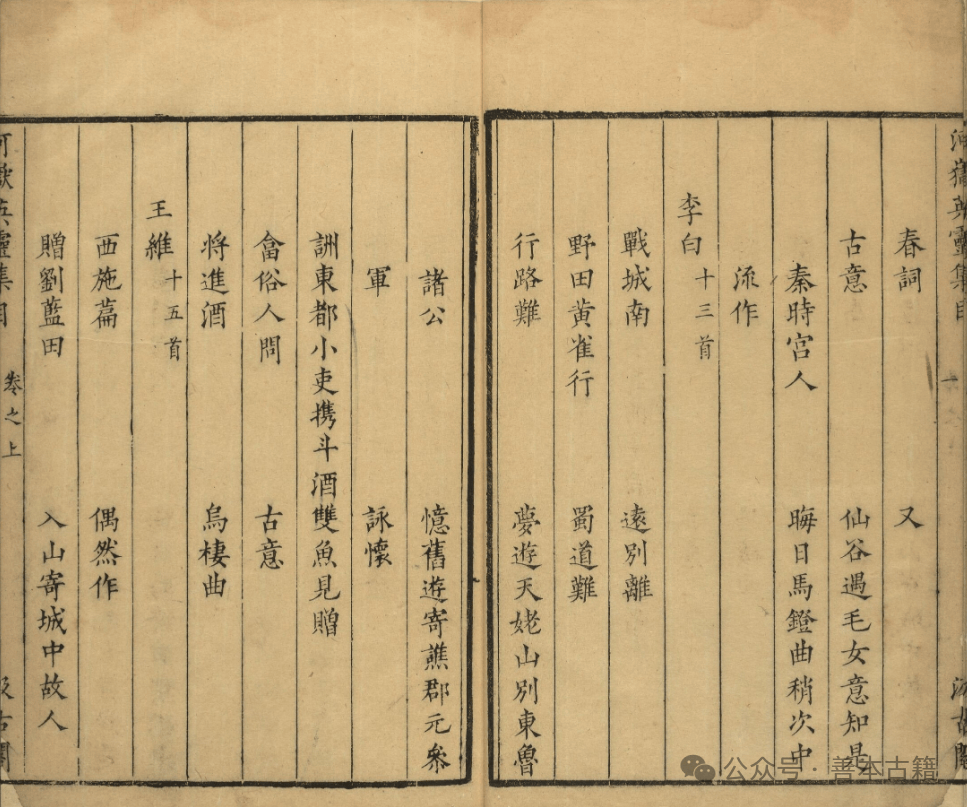 河嶽英靈集目
一
汲古閣
春詞
又
古意
仙谷遇毛女意知是
秦時宮人
晦日馬鐙曲稍次中
流作
李白十三首
戰城南
遠別離
野田黃雀行
蜀道難
行路難
夢遊天姥山別東魯
諸公
憶舊遊寄譙郡元參
軍
詠懷
詶東都小吏携斗酒雙魚見贈
畣俗人問
古意
將進酒
烏棲曲
王維十五首
西施篇
偶然作
贈劉藍田
入山寄城中故人
河嶽英靈集目
卷之上
汲古閣
公众号·善本古籍